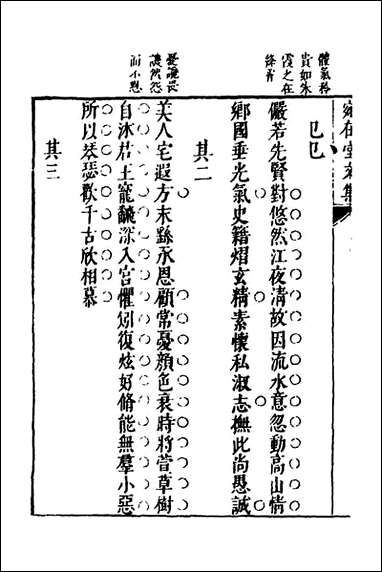 體氣矜
貴如朱
霞之在
絳霄
巳巳
儼若先賢對悠然江夜清故因流水意忽動高山情
鄉國垂光氣史籍熠玄精素懷私淑志撫此尚恳誠
其二
憂讒畏
譏然怨
而不怒
美人宅遐方末繇承恩顧常憂顏色衰時將萱草樹
自沐君王寵驪深入宮懼矧復炫好脩能無羣小惡
所以琴瑟歡千古欣相慕
其三